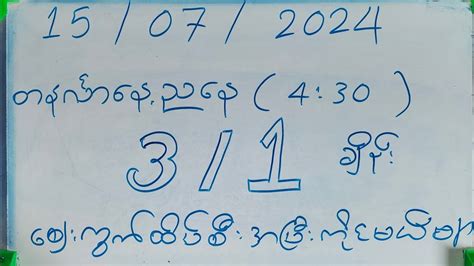 15 / 07 / 2024
တနင်္လာနေ့ ညနေ ( 4:30 )
3 / 1 ချိန်း
ဈေးကွက်ထိပ်စီး အကြီးကိုင်မယ်ဗျာ